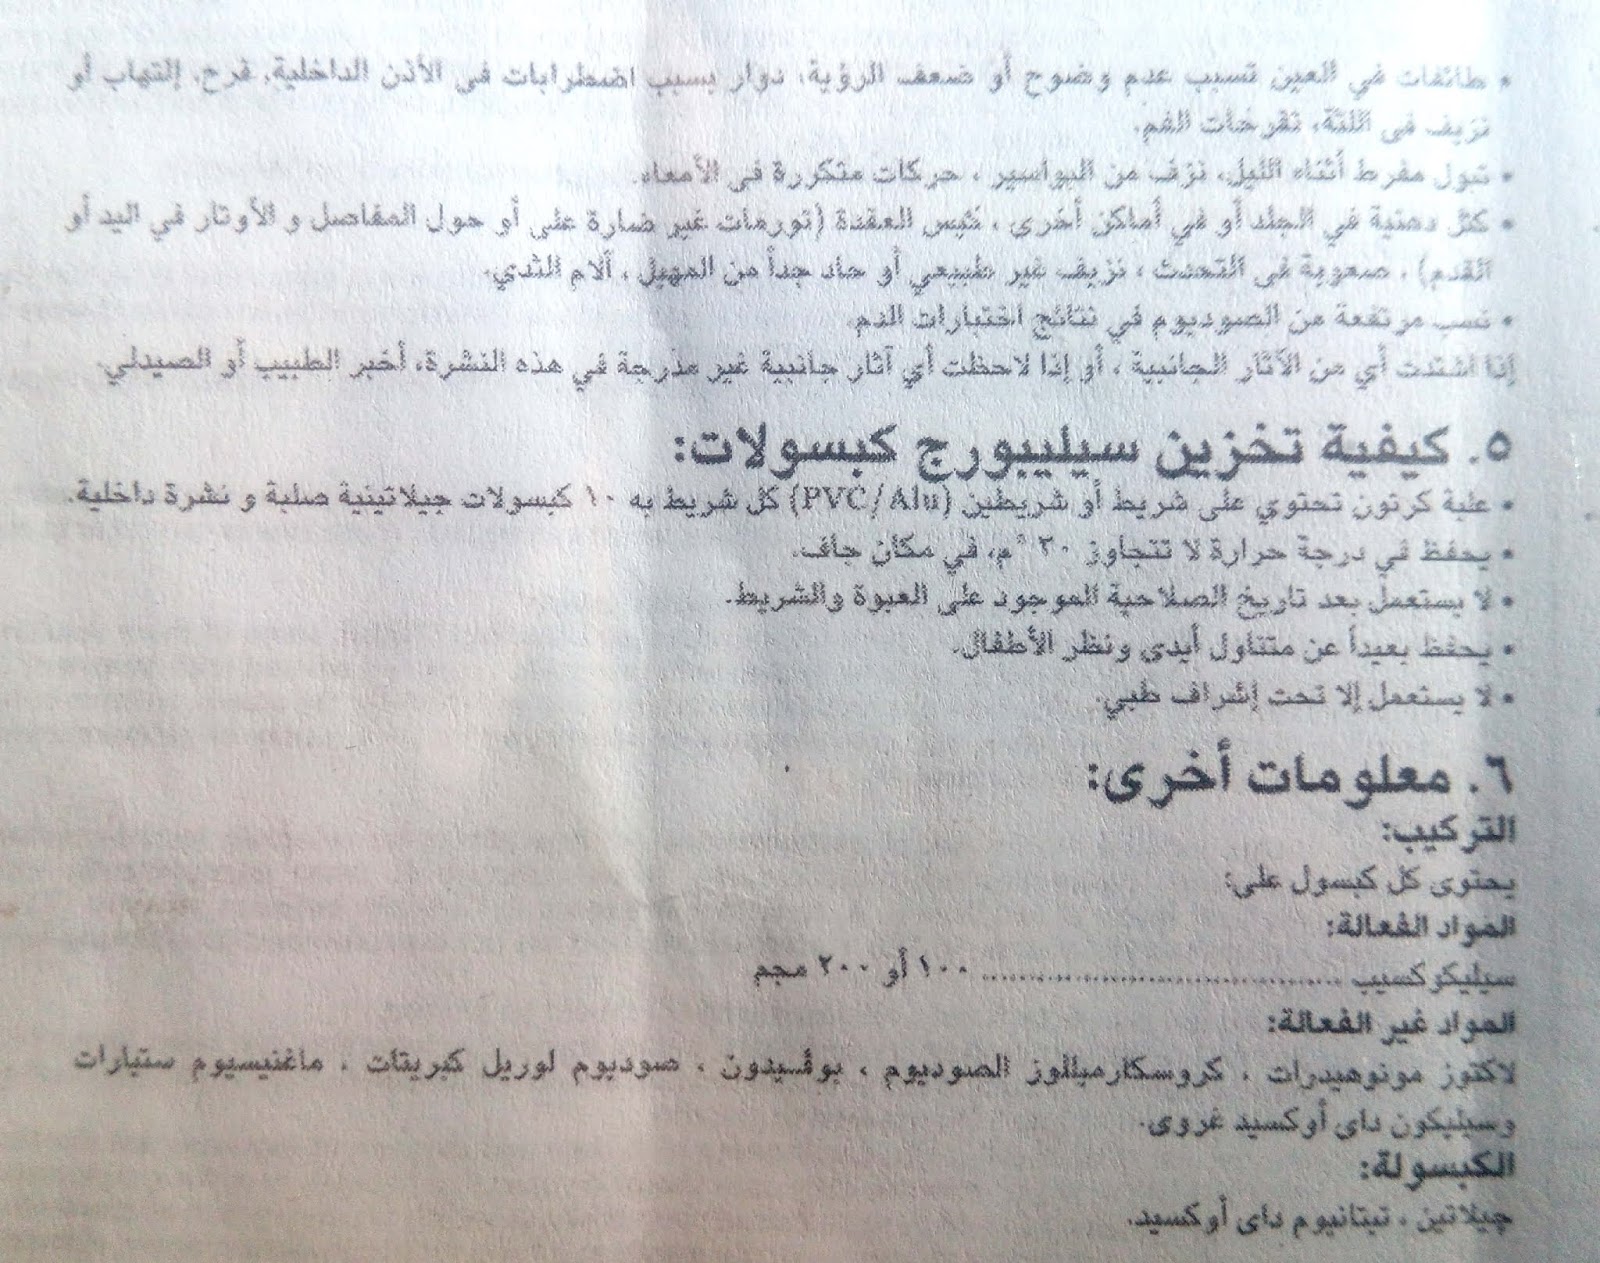 • طائفات في العين تسبب عدم وضوح أو ضعف الرؤية، دوار بسبب اضطرابات فى الأذن الداخلية، قرح، إلتهاب أو
نزيف فى اللثة، تقرحات الفم.
• تبول مفرط أثناء الليل، نزف من البواسير ، حركات متكررة فى الأمعاء.
• كتل دهنية في الجلد أو في أماكن أخرى ، كيس العقدة (تورمات غير ضارة على أو حول المفاصل و الأوتار في اليد أو
القدم) ، صعوبة فى التحدث ، نزيف غير طبيعي أو حاد جداً من المهبل ، آلام الثدي.
• نسب مرتفعة من الصوديوم في نتائج اختبارات الدم.
إذا اشتدت أي من الآثار الجانبية ، أو إذا لاحظت أي آثار جانبية غير مدرجة في هذه النشرة، أخبر الطبيب أو الصيدلي.
٥. كيفية تخزين سيليبورج كبسولات:
• علبة كرتون تحتوي على شريط أو شريطين (PVC/Alu) كل شريط به ١٠ كبسولات جيلاتينية صلبة و نشرة داخلية.
• يحفظ في درجة حرارة لا تتجاوز ٣٠ °م، في مكان جاف.
• لا يستعمل بعد تاريخ الصلاحية الموجود على العبوة والشريط.
• يحفظ بعيداً عن متناول أيدى ونظر الأطفال.
• لا يستعمل إلا تحت إشراف طبي.
٦. معلومات أخرى:
التركيب:
يحتوى كل كبسول على:
المواد الفعالة:
سيليكوكسيب ........................................ ١٠٠ أو ٢٠٠ مجم
المواد غير الفعالة:
لاكتوز مونوهيدرات ، كروسكارميللوز الصوديوم ، بوڤيدون ، صوديوم لوريل كبريتات ، ماغنيسيوم ستيارات
وسيليكون داى أوكسيد غروى.
الكبسولة:
جيلاتين ، تيتانيوم داى أوكسيد.